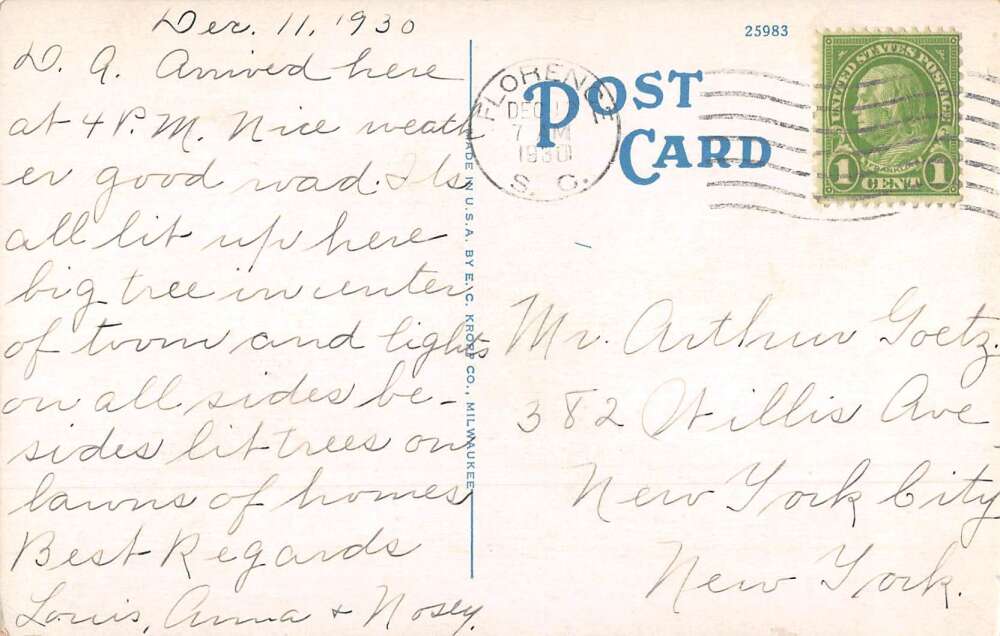 Dec. 11, 1930
D. A. Arrived here
at 4 P.M. Nice weath
er good road. Its
all lit up here
big tree in center
of town and lights
on all sides be-
sides lit trees on
lawns of homes
Best Regards
Louis, Anna & Nosey.
MADE IN U.S.A. BY E. C. KROPP CO., MILWAUKEE
25983
POST
CARD
FLORENCE
DEC
7 M
1930
S. C.
UNITED STATES POSTAGE
FRANKLIN
1 CENT 1
Mr. Arthur Goetz.
382 Willis Ave
New York City
New York.